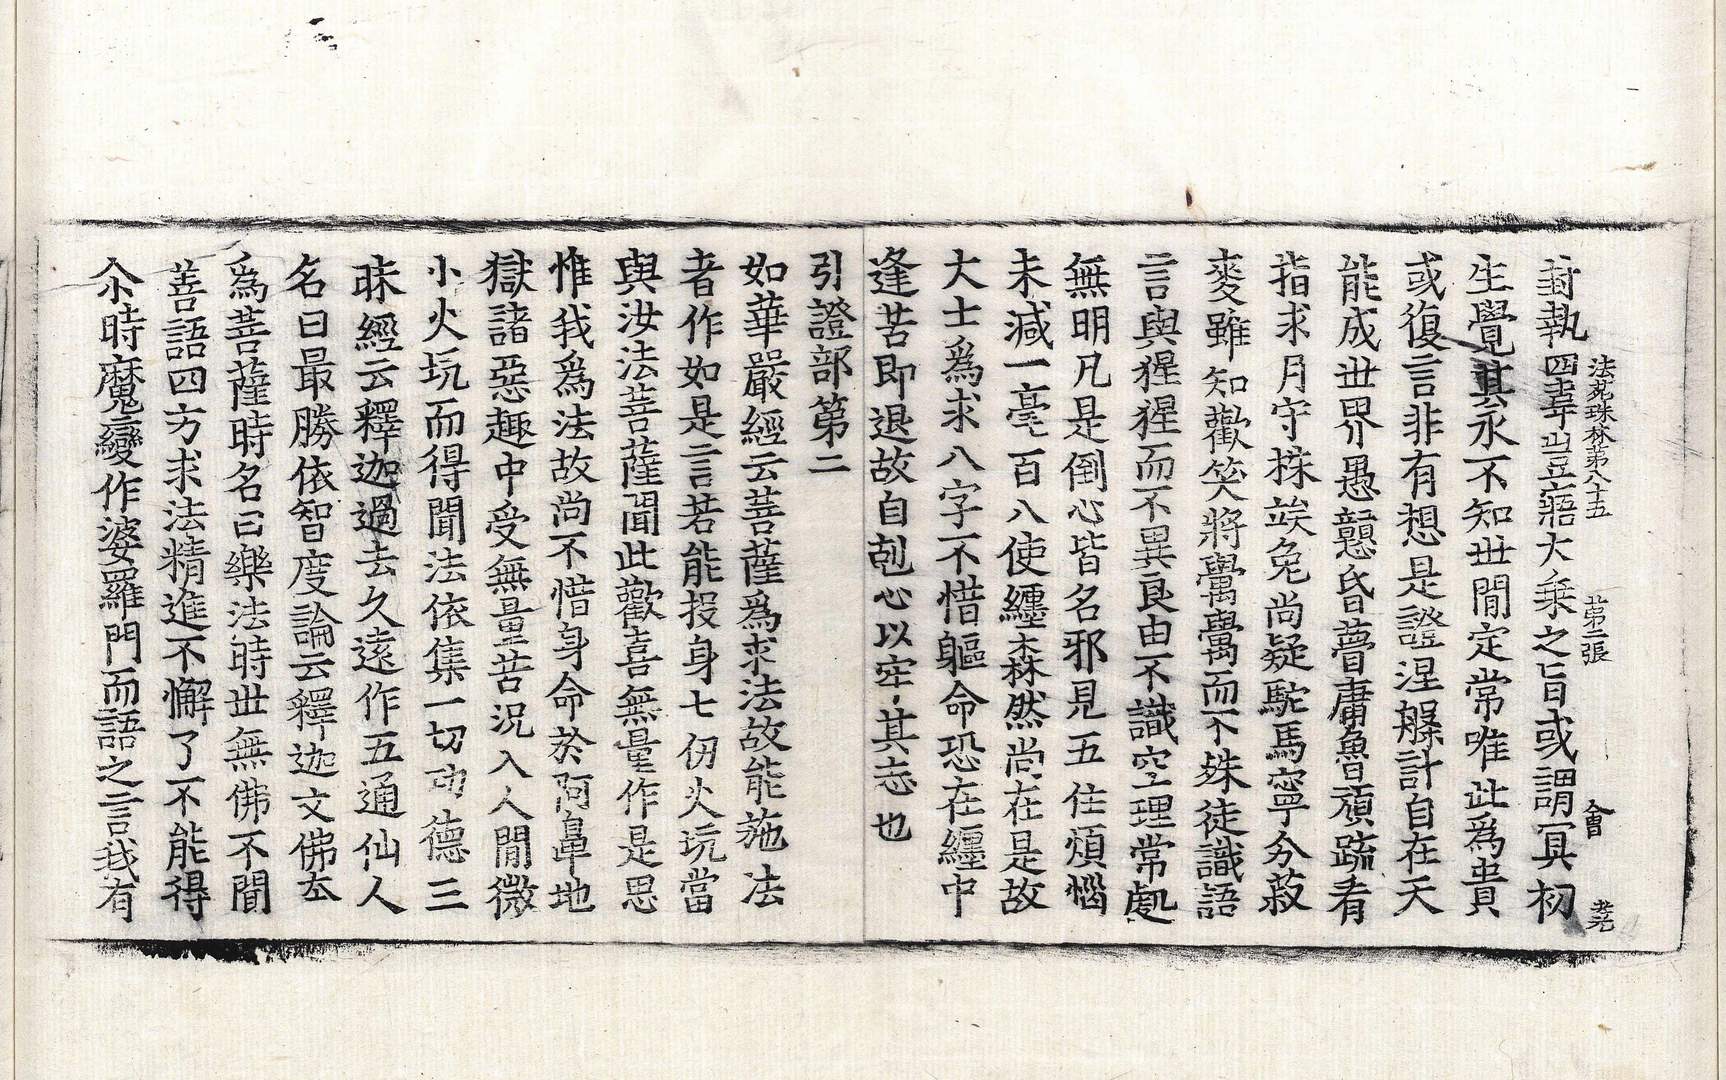 法苑珠林第八十五 第二張 會 老光
封執四韋豈寤大乗之旨或謂冥初
生覺其永不知世閒定常唯此爲貴
或復言非有想是證涅槃計自在天
能成世界愚戇昏瞢庸魯頑疏看
指求月守株竢兔尚疑駝馬寧分菽
麥雖知歡笑將𤣓𤣓而不殊徒識語
言與猩猩而不異良由不識空理常處
無明凡是倒心皆名邪見五住煩惱
未減一毫百八使纏森然尚在是故
大士爲求八字不惜軀命恐在纏中
逢苦即退故自剋心以牢其志也
引證部第二
如華嚴經云菩薩爲求法故能施法
者作如是言若能投身七仞火坑當
與汝法菩薩聞此歡喜無量作是思
惟我爲法故尚不惜身命於阿鼻地
獄諸惡趣中受無量苦況入人閒微
小火坑而得聞法依集一切功德三
昧經云釋迦過去久遠作五通仙人
名曰最勝依智度論云釋迦文佛本
爲菩薩時名曰樂法時世無佛不聞
善語四方求法精進不懈了不能得
尒時魔變作婆羅門而語之言我有